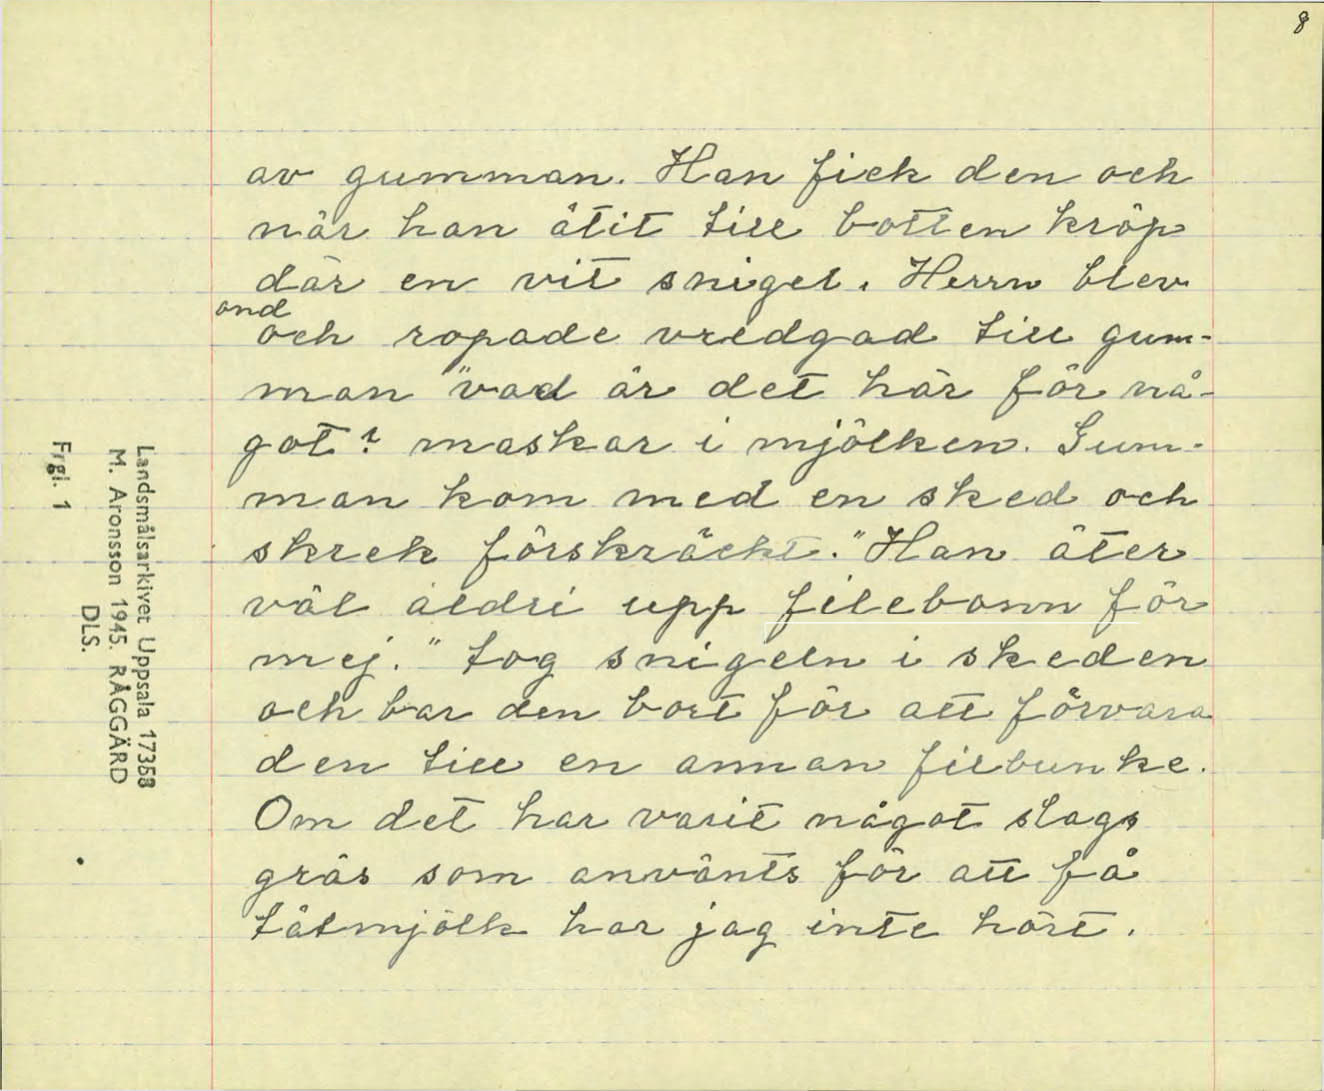 8
av gumman. Han fick den och
när han ätit till botten kröp
där en vit snigel. Herrn blev
ond
och ropade vredgad till gum-
man "vad är det här för nå-
got? maskar i mjölken. Gum-
man kom med en sked och
skrek förskräckt. "Han äter
väl aldri upp filebonn för
mej." tog snigeln i skeden
och bar den bort för att förvara
den till en annan filbunke.
Om det har varit något slags
gräs som använts för att få
tätmjölk har jag inte hört.
Landsmålsarkivet Uppsala 17368
M. Aronsson 1945. RÅGGÄRD
DLS.
Frgl. 1